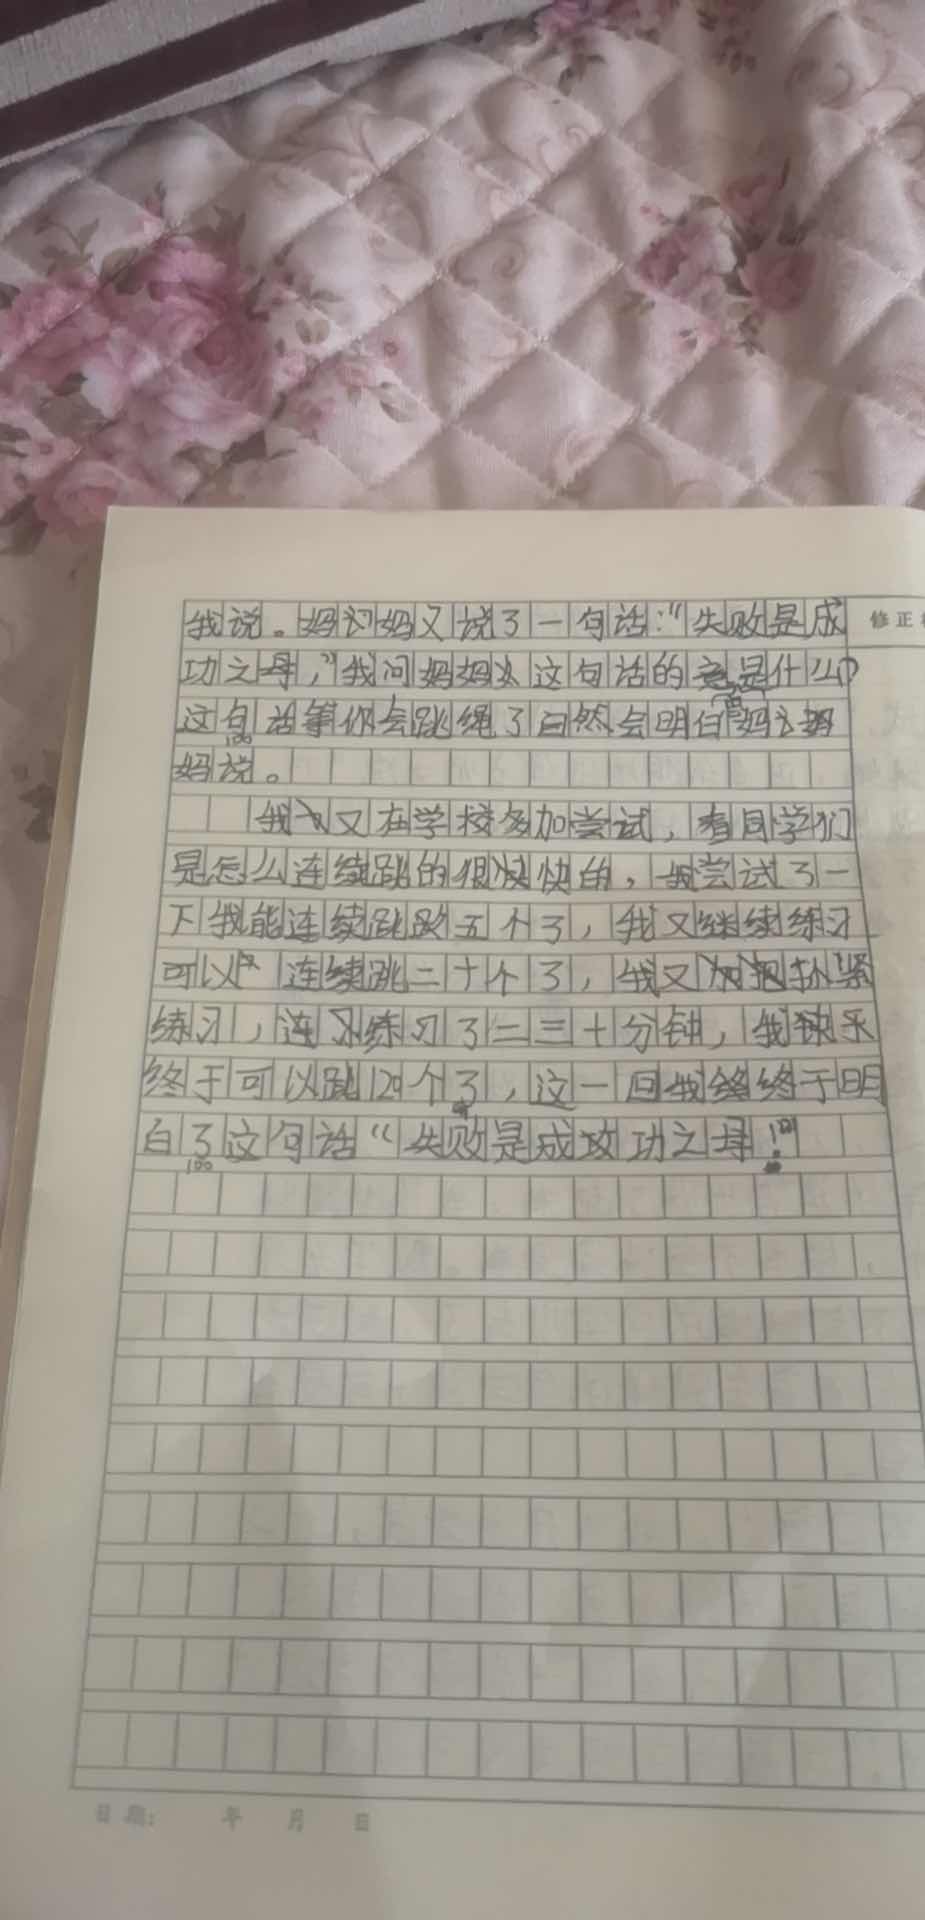 我说。妈妈又说了一句话："失败是成
修正
功之母，"我问妈妈这句话的意思是什么
这句话等你会跳绳了自然会明白妈
妈说。
我又在学校多加尝试，看同学们
是怎么连续跳的很快的，我尝试了一
下我能连续跳五个了，我又继续练习
可以连续跳二十个了，我又加把抓紧
练习，连练习了二三十分钟，我快乐
终于可以跳120个了，这一回我终于明
白了这句话"失败是成功之母！"
日期： 年 月 日